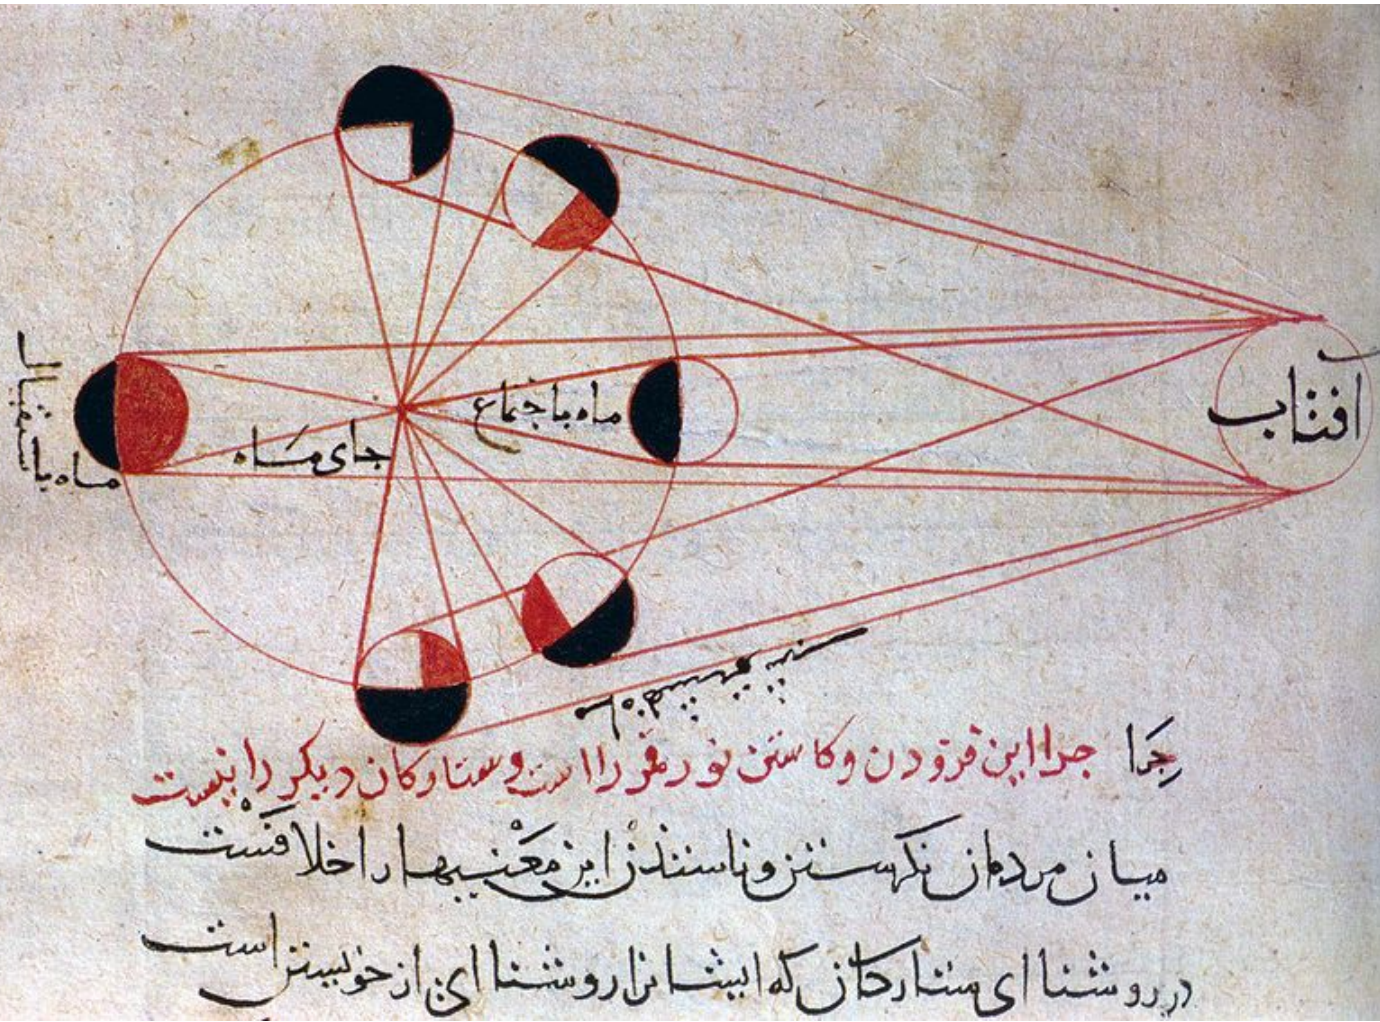 آفتاب
ماه باجتماع
جای ماه
ماه باستقبال
چرا چرا این فزودن وکاستن نور قمر را است و ستارکان دیکر را نیست
میان مردمان نکرستن و این معنیها را خلافست
در روشنا ای ستارکان که ایشانرا روشنا ای از خویشتن است